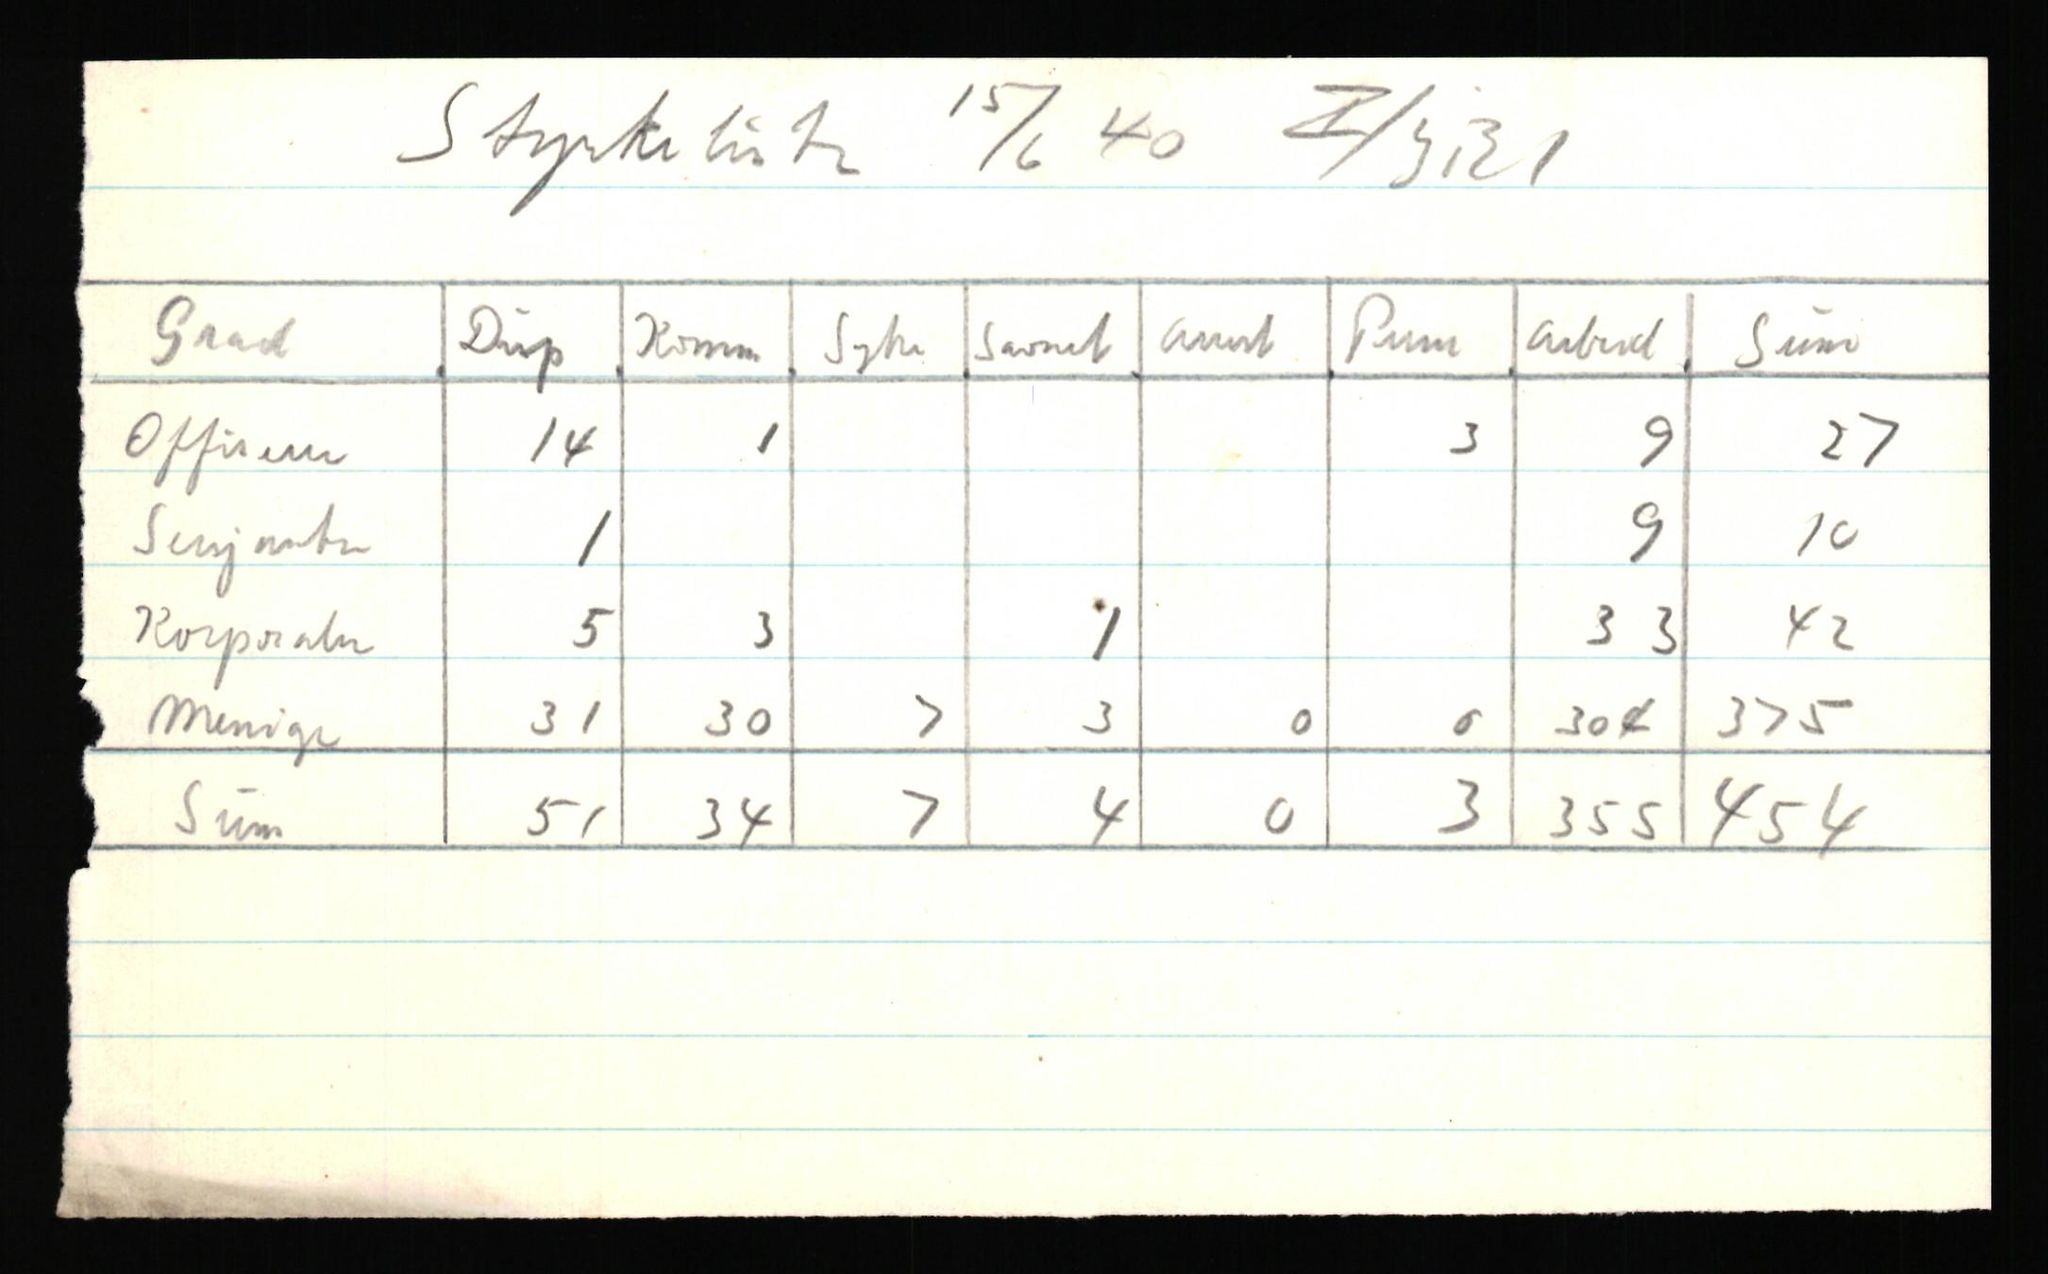 Styrkeliste 15/6 40 I/
Grad Disp Komm Syke Savnet arrest Perm arbeid Sum
Offiserer 14 1 3 9 27
Sersjanter 1 9 10
Korporaler 5 3 1 33 42
Menige 31 30 7 3 0 0 304 375
Sum 51 34 7 4 0 3 355 454